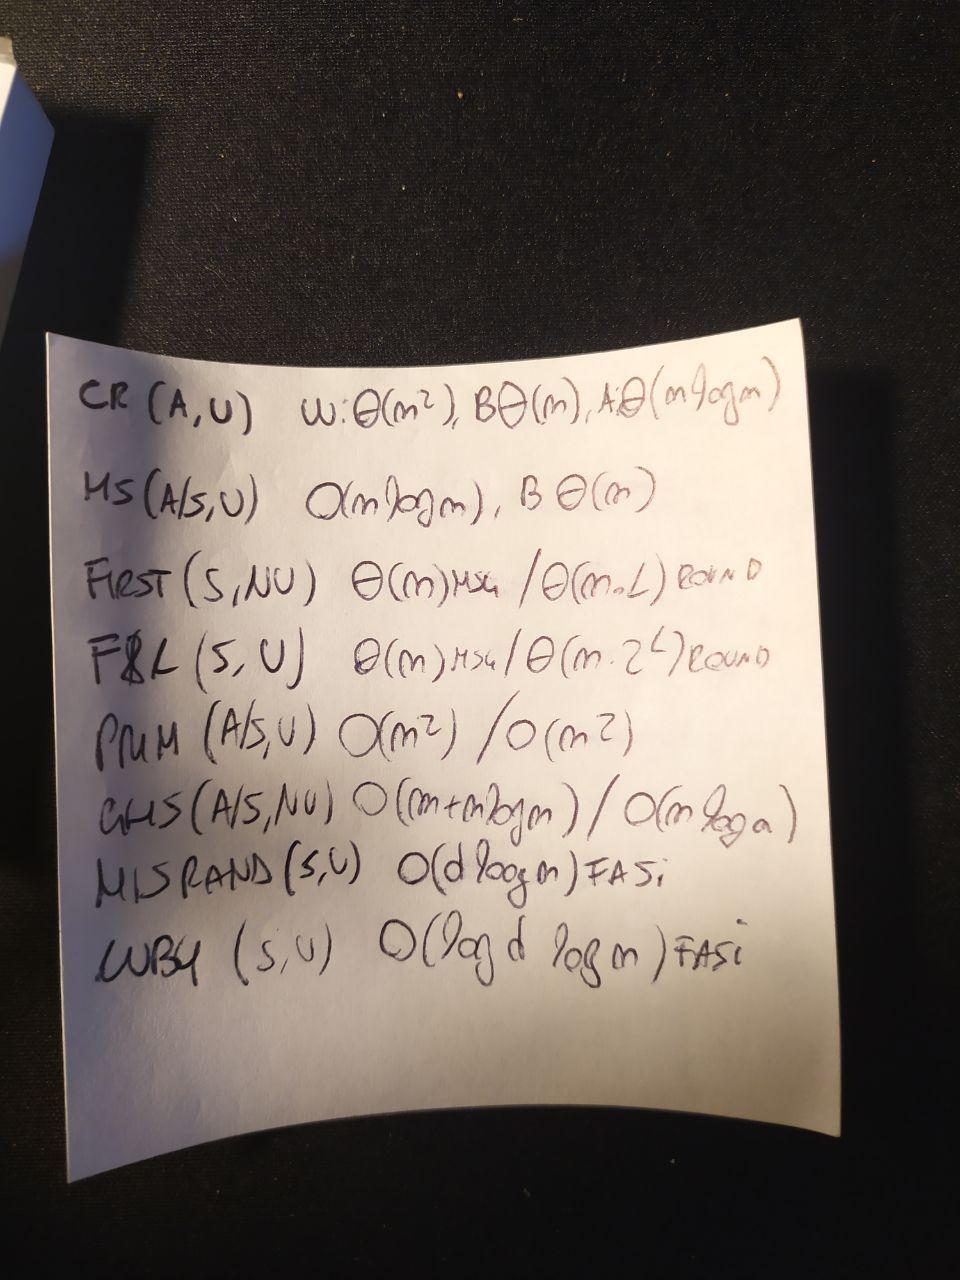 CR (A,U) W:Θ(n²), BΘ(n), A:Θ(n log n)
HS (A/S,U) O(n log n), B Θ(n)
FIRST (S,NU) Θ(n) MSG / Θ(n·L) ROUND
F&L (S,U) Θ(n) MSG / Θ(n·2^L) ROUND
PRIM (A/S,U) O(n²) / O(n²)
GHS (A/S,NU) O(m+n log n) / O(n log n)
MISRAND (S,U) O(d log n) FASi
LUBY (S,U) O(log d log n) FASi